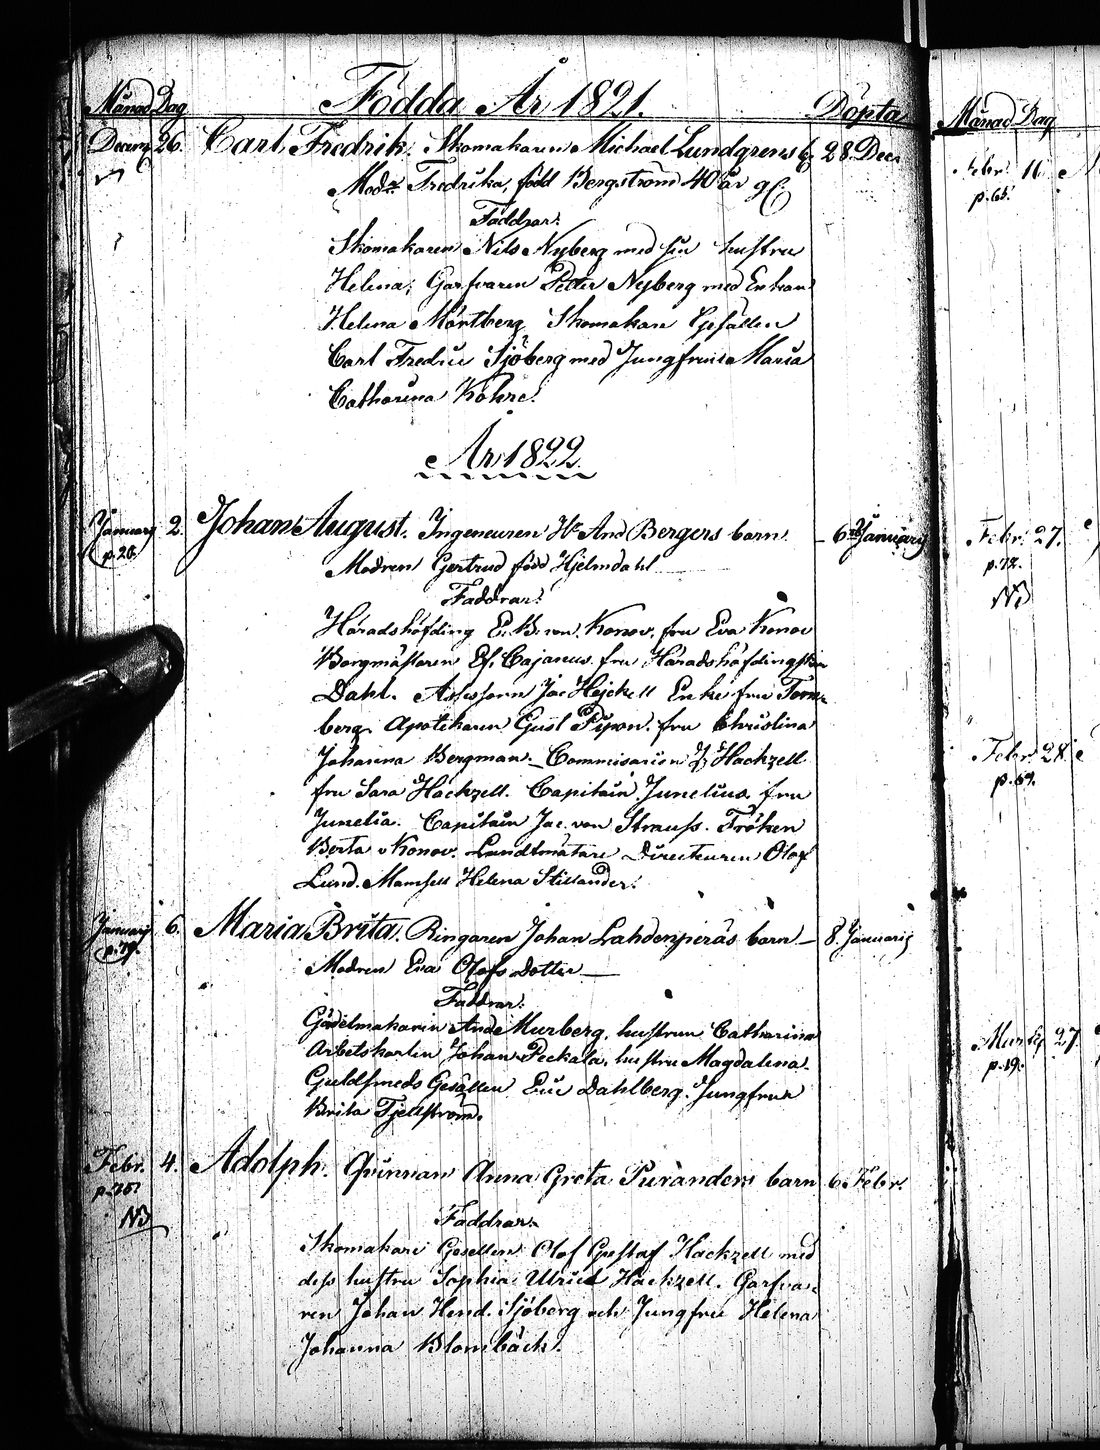 Månad Dag Födda År 1821. Döpta
Decemb. 26. Carl Fredrik. Skomakaren Michael Lundgrens b. 28 Dec.
Modr. Fredrika, född Bergström 40 år
Faddrar:
Skomakaren Nils Nyberg med sin hustru
Helena; Garfvaren Petter Nyberg med Enkan
Helena Mörtberg Skomakare Gesällen
Carl Fredric Sjöberg med Jungfrun Maria
Catharina Kohre.
År 1822
January 2. Johan August. Ingeneuren Hr And Bergers barn 6 January
p. 20.
Modren Gertrud född Hjelmdahl
Faddrar:
Häradshöfding E. B. von Konov, fru Eva Konov
Borgmästaren Cajanus, fru Häradshöfdingskan
Dahl. Assessorn Jac Hejckell Enke fru Torn-
berg. Apotikaren Gust Pipon. fru Christina
Johanna Bergman. Commissarien J. Hackzell
fru Sara Hackzell. Capitain Junelius fru
Junelia. Capitain Jac. von Strauss. Fröken
Berta v Konov. Landtmätare Directeuren Olof
Lund. Mamsell Helena Stillander.
January 6. Maria Brita. Ringaren Johan Lahdenperäs barn 8. January
p. 79.
Modren Eva Olofs Dotter
Faddrar:
Gördelmakaren And Murberg, hustrun Catharina
Arbetskarlen Johan Peckala, hustru Magdalena.
Guldsmeds Gesällen Eric Dahlberg. Jungfrun
Brita Fjellström.
Febr. 4. Adolph. Qvinnan Anna Greta Puranders barn 6 Febr.
NB
Faddrar.
Skomakare Gesellen Olof Gustaf Hackzell med
dess hustru Sophia Ulrica Hackzell. Garfva-
ren Johan Hend. Sjöberg och Jungfru Helena
Johanna Blombäck.
Månad Dag
Febr. 11.
p. 65.
Febr. 27.
p. 72.
NB
Febr. 28.
p. 69.
27
p. 19.